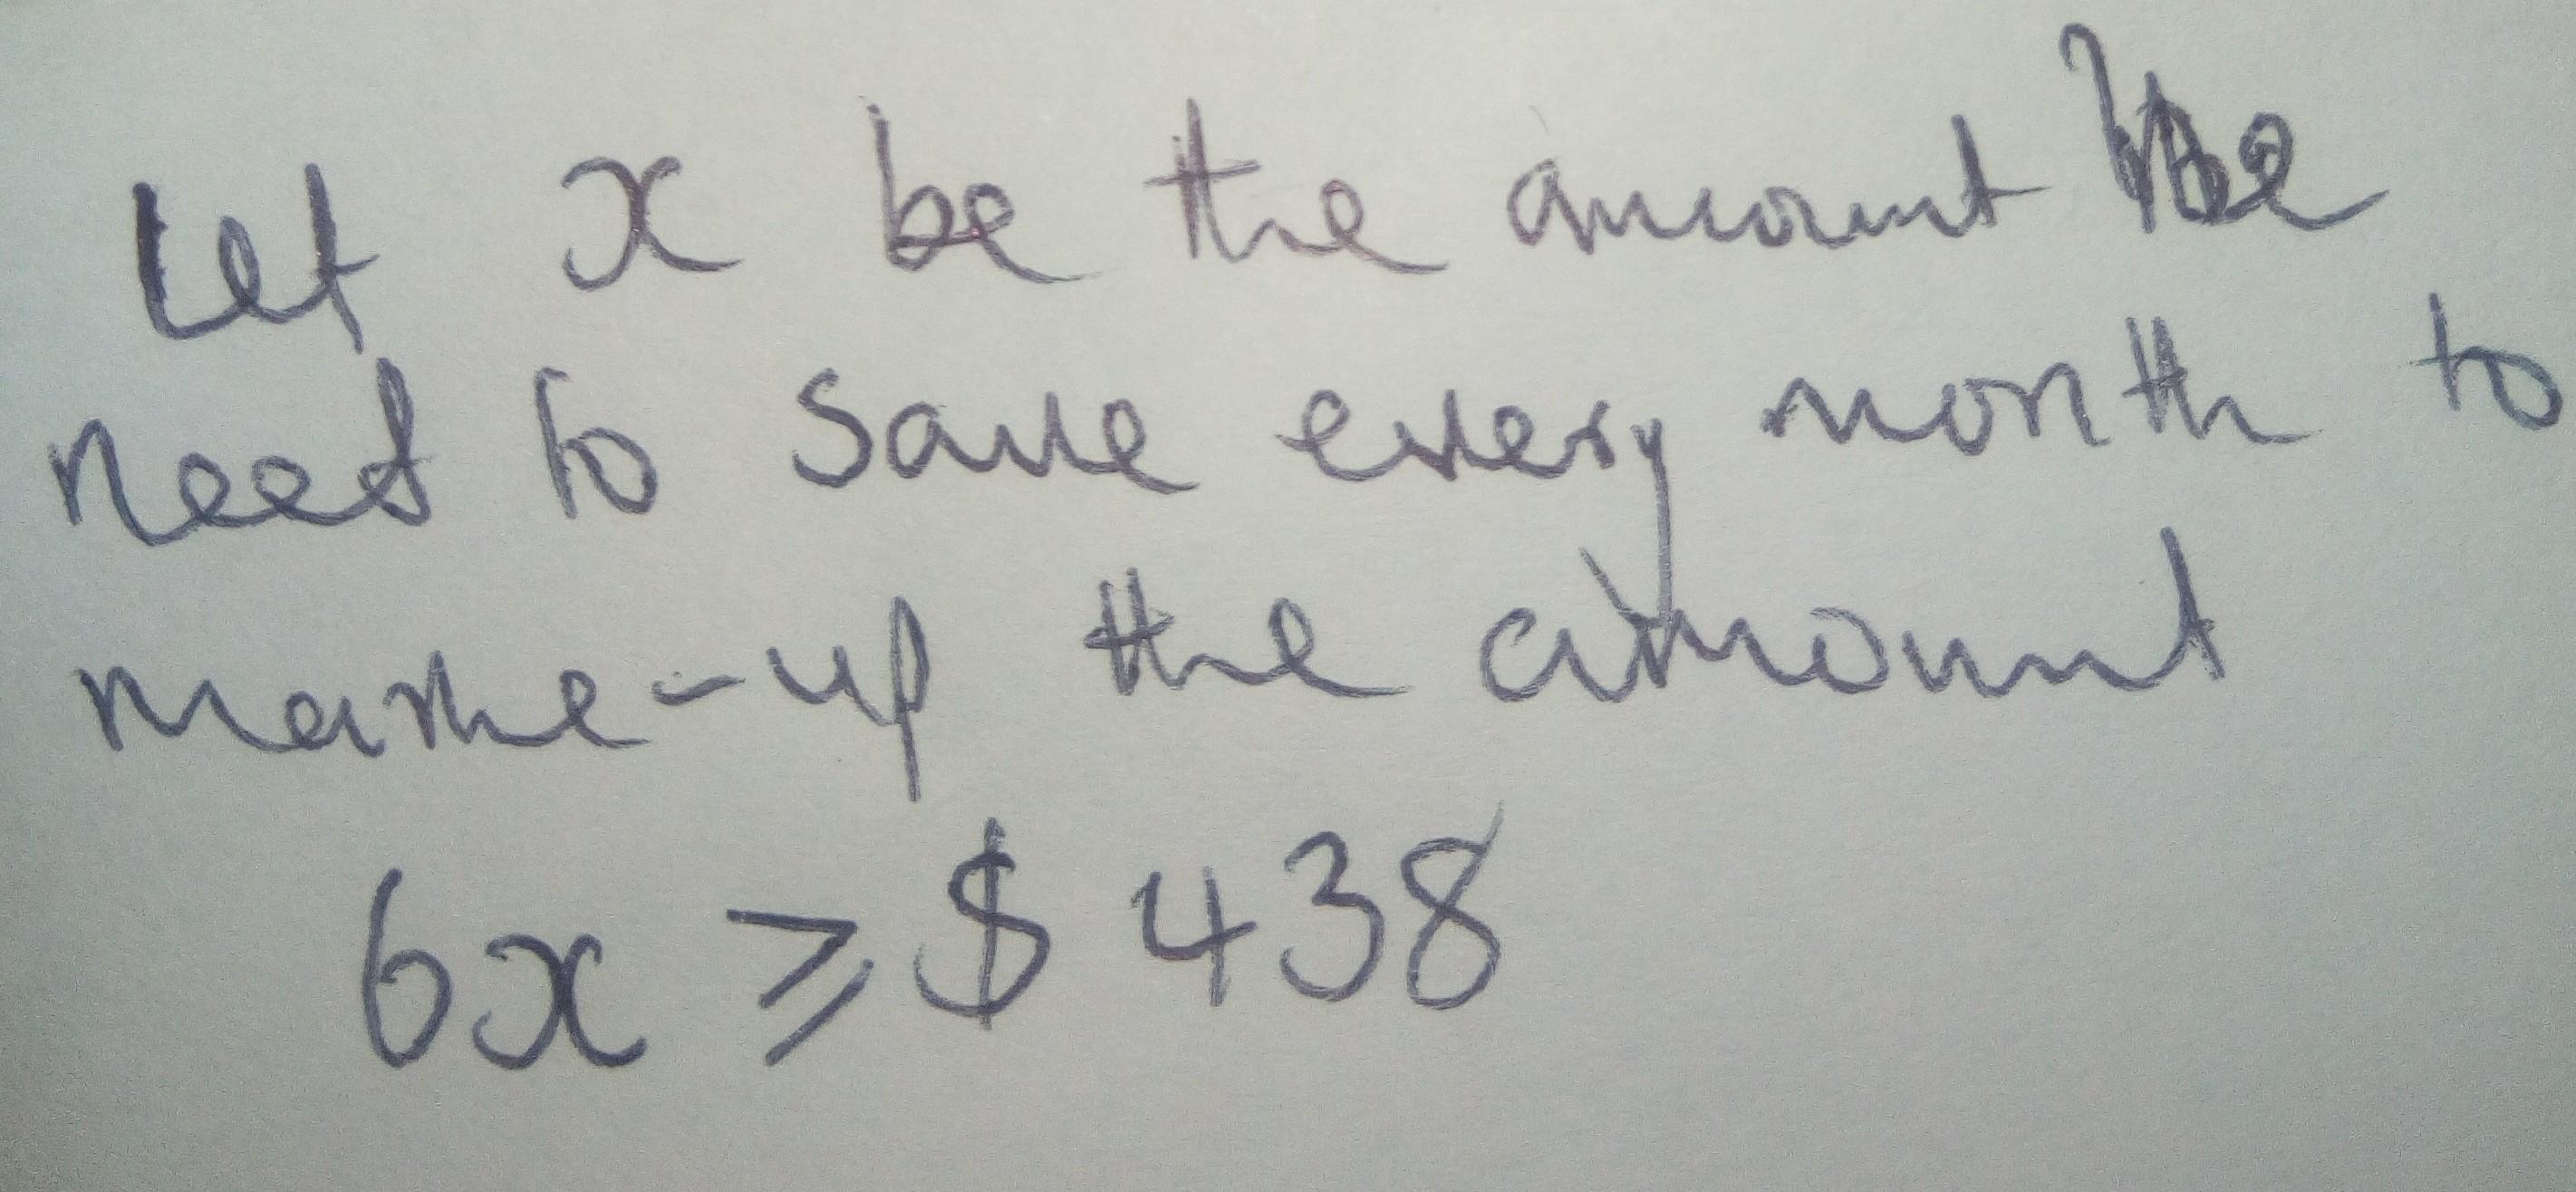 Let x be the amount he
need to save every month to
make-up the amount
6x ⩾ $438